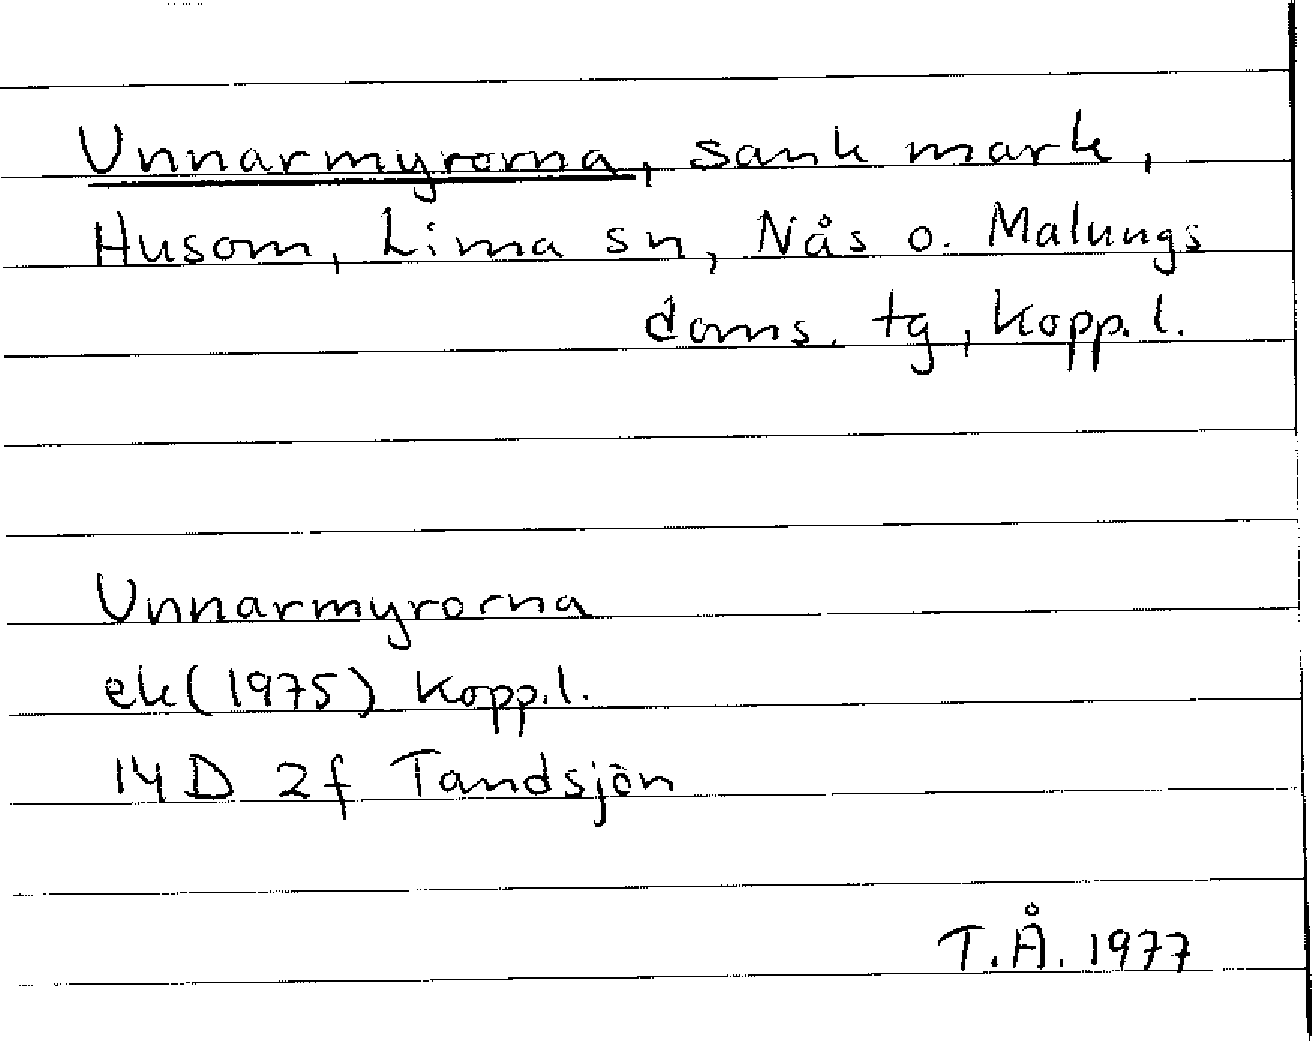 Unnarmyrorna, sank mark,
Husom, Lima sn, Nås o. Malungs
doms. tg, Kopp. l.
Unnarmyrorna
ek (1975) Kopp. l.
14 D 2f Tandsjön
T.Å. 1977